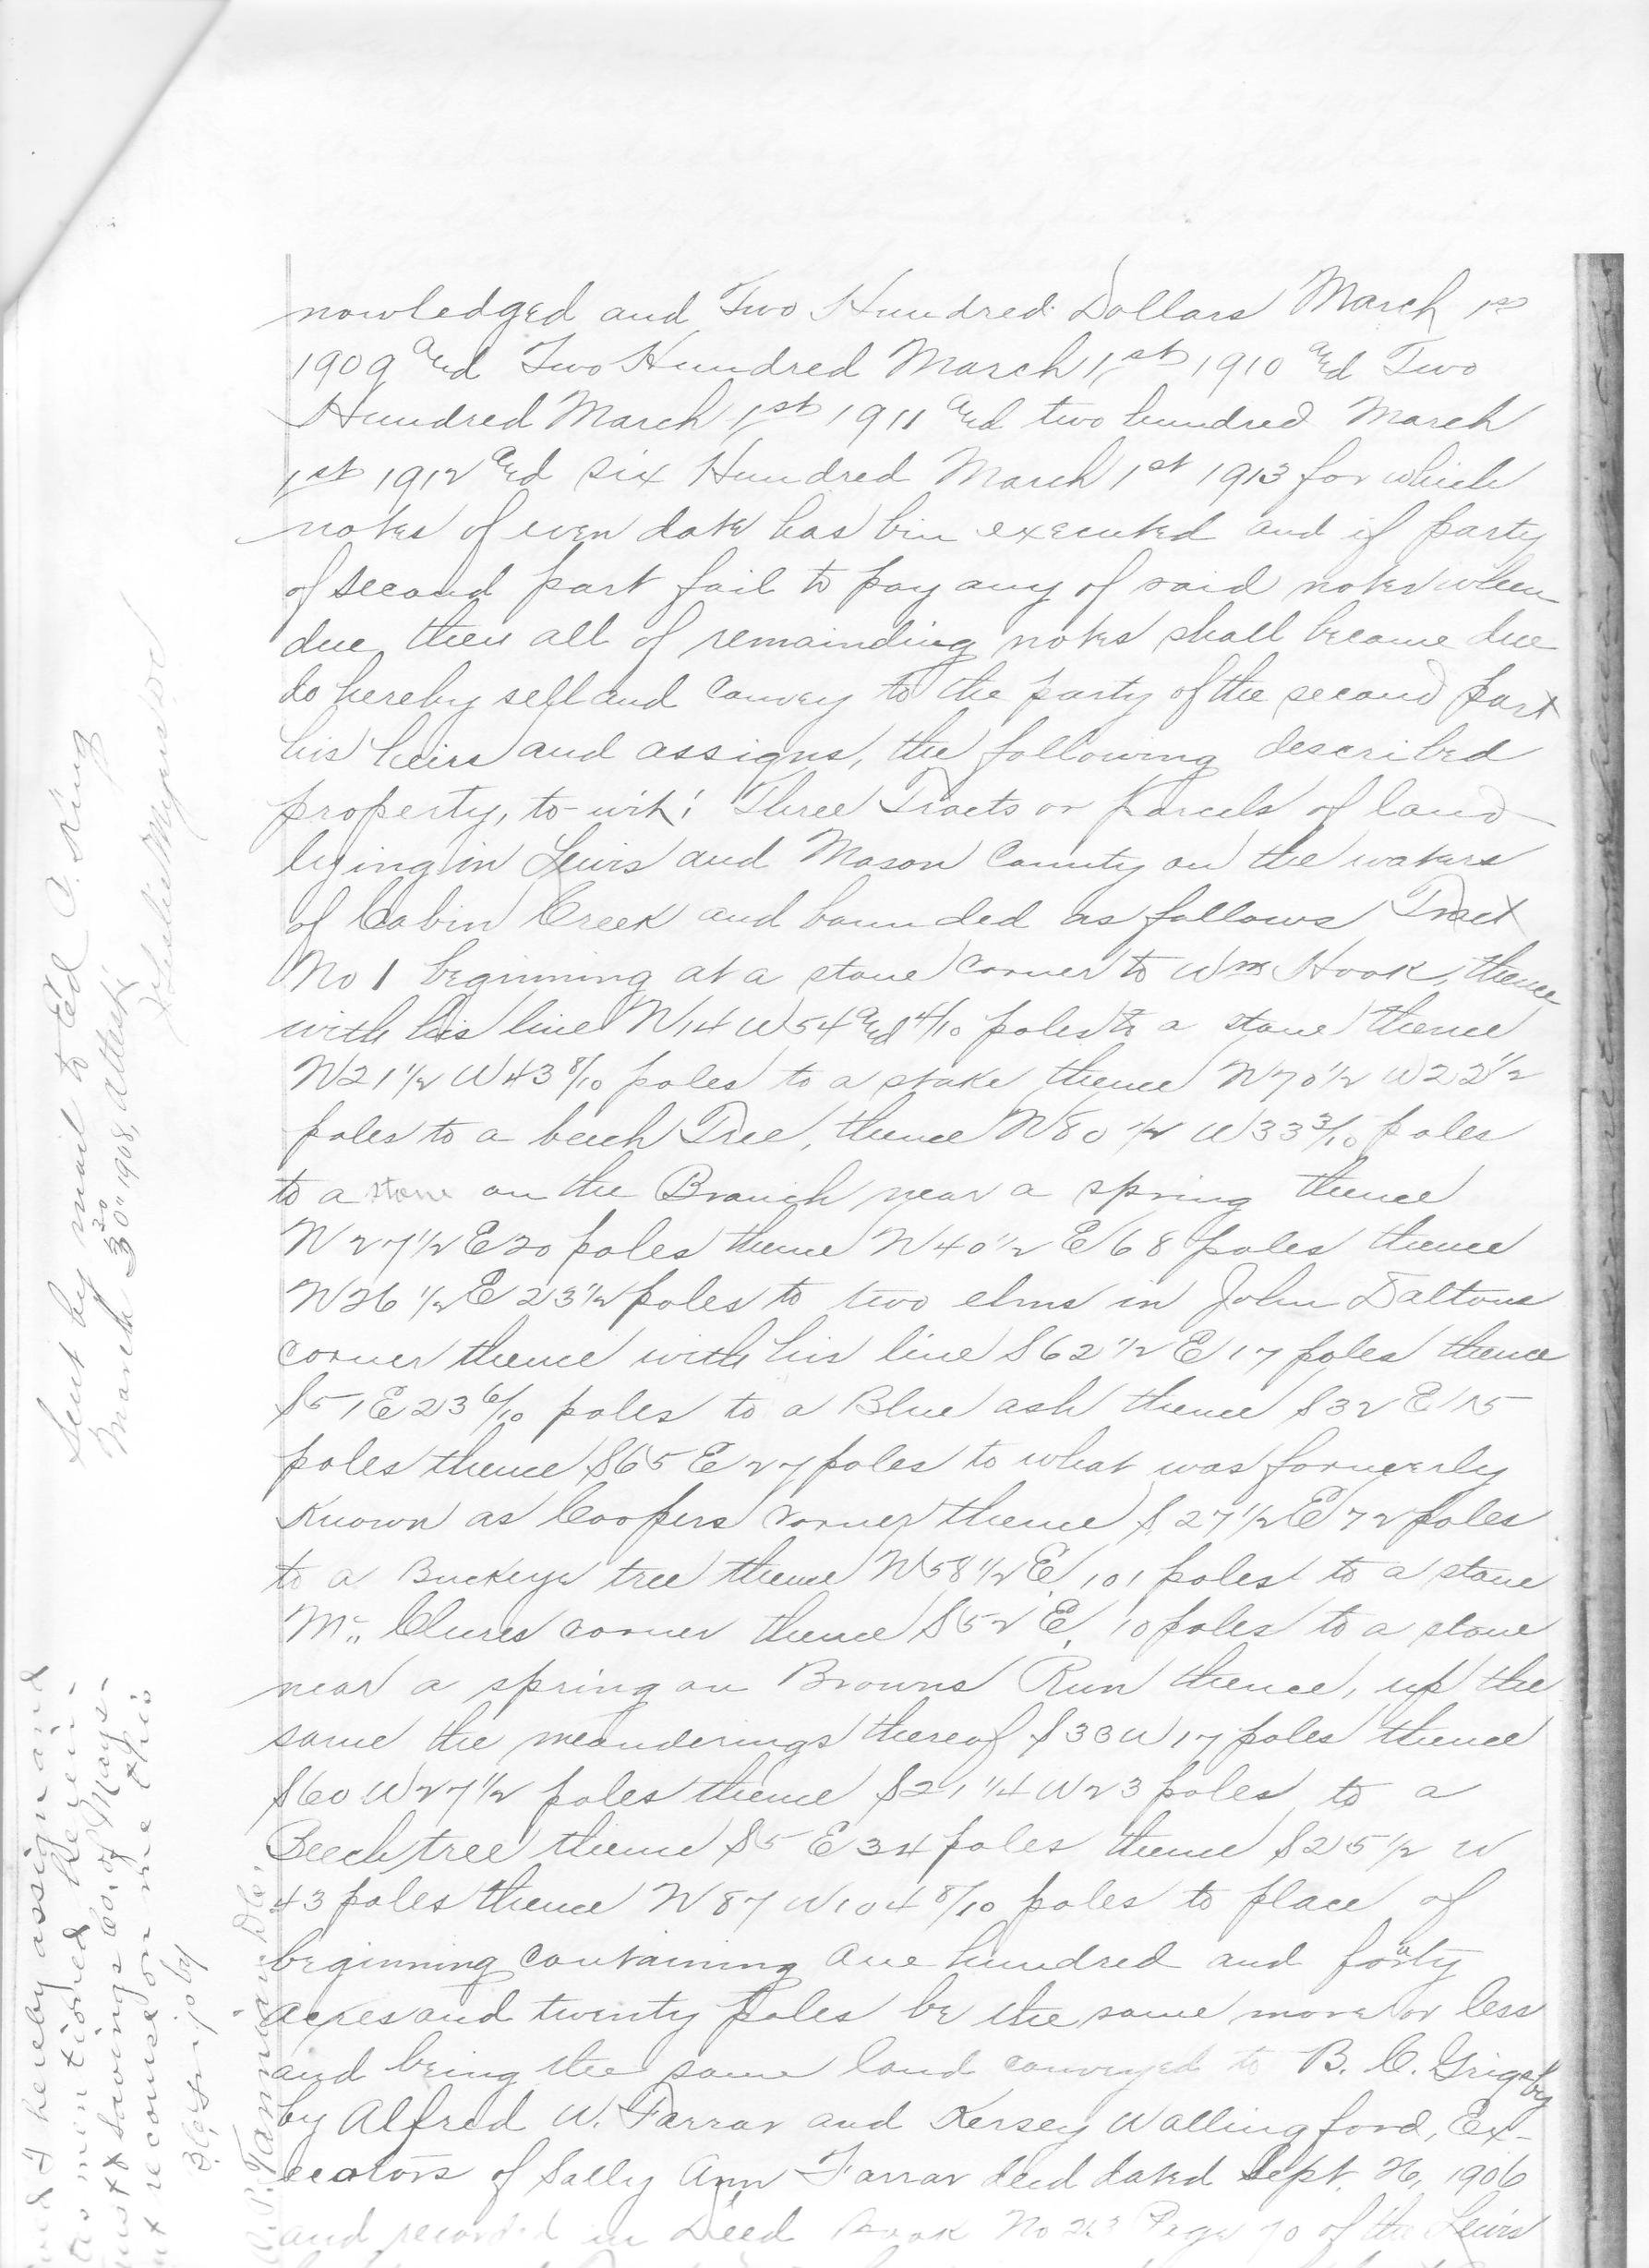 nowledged and Two Hundred Dollars March 1st
1909 and Two Hundred March 1st 1910 and Two
Hundred March 1st 1911 and two hundred March
1st 1912 and six Hundred March 1st 1913 for which
notes of even date has bin executed and if party
of second part fail to pay any of said notes when
due then all of remainding notes shall become due
do hereby sell and convey to the party of the second part
his heirs and assigns, the following described
property, to-wit: Three Tracts or parcels of land
lying in Lewis and Mason County on the waters
of Cabin Creek and bounded as follows Tract
No 1 beginning at a stone corner to Wm Hook, thence
with his line N14 W54 and 4/10 poles to a stone thence
N21 1/2 W43 8/10 poles to a stake thence N70 1/2 W22 1/2
poles to a beech Tree, thence N80 1/2 W33 3/10 poles
to a stone on the Branch near a spring thence
N27 1/2 E20 poles thence N40 1/2 E68 poles thence
N26 1/2 E23 1/2 poles to two elms in John Daltons
corner thence with his line S62 1/2 E17 poles thence
S51 E23 6/10 poles to a Blue ash thence S32 E15
poles thence S65 E27 poles to what was formerly
Known as Coopers corner thence S27 1/2 E72 poles
to a Buckeye tree thence N58 1/2 E. 101 poles to a stone
Mc Clures corner thence S52 E. 10 poles to a stone
near a spring on Browns Run thence, up the
same the meanderings thereof S33 W17 poles thence
S60 W27 1/2 poles thence S21 1/4 W23 poles to a
Beech tree thence S5 E34 poles thence S25 1/2 W
43 poles thence N87 W104 8/10 poles to place of
beginning containing one hundred and forty
acres and twenty Poles be the same more or less
and being the same land conveyed to B. C. Grigsby
by Alfred W. Farrar and Kersey Wallingford, Ex-
ecutors of Sally Ann Farrar deed dated Sept. 26, 1906
and recorded in Deed Book No Page 70 of the Lewis
Sent by mail to Ed C. King
March 30" 1908, Attest:
hereby assign and
mentioned herein
savings Co, of Mays-
recourse on me this
by